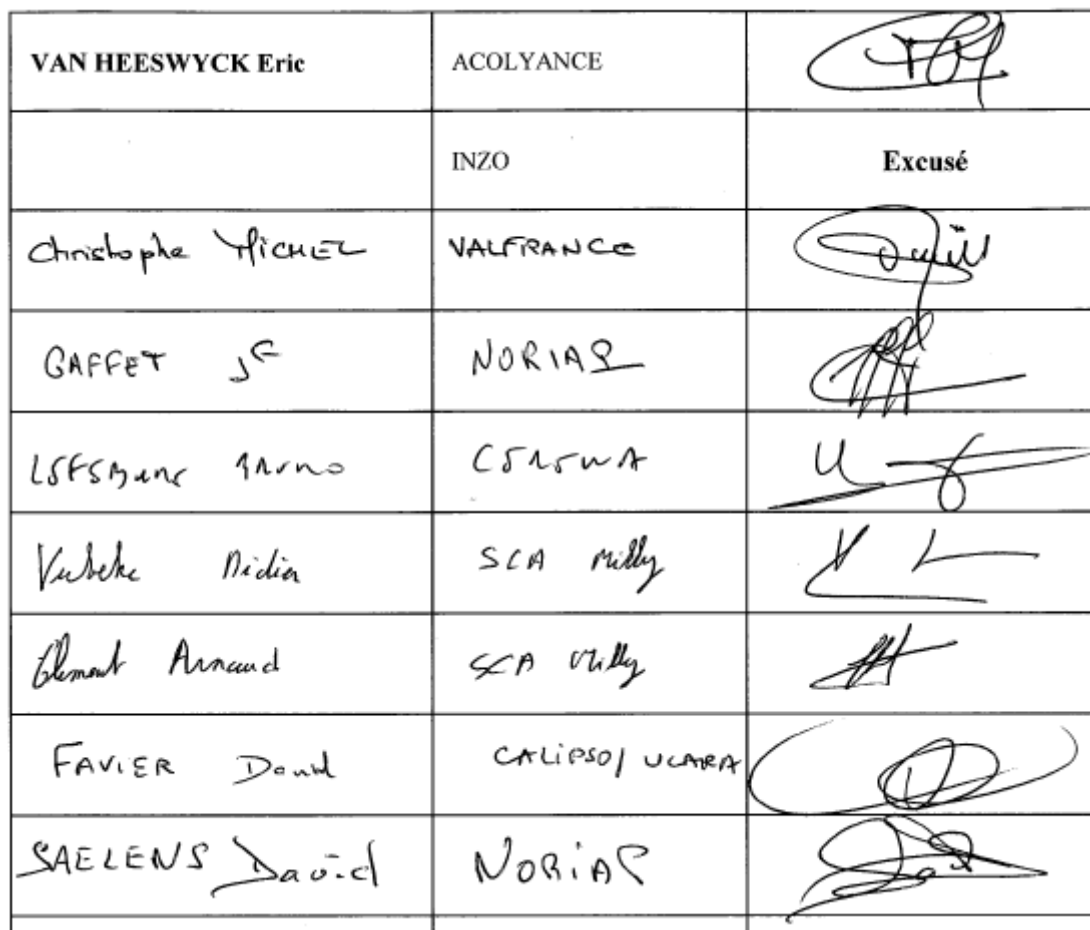 VAN HEESWYCK Eric ACOLYANCE
INZO Excusé
Christophe MICHEL VALFRANCE
GAFFET JF NORIAP
SCA Milly
Clement Arnaud SCA Milly
FAVIER David CALIPSO/ UCARA
SAELENS David NORIAP